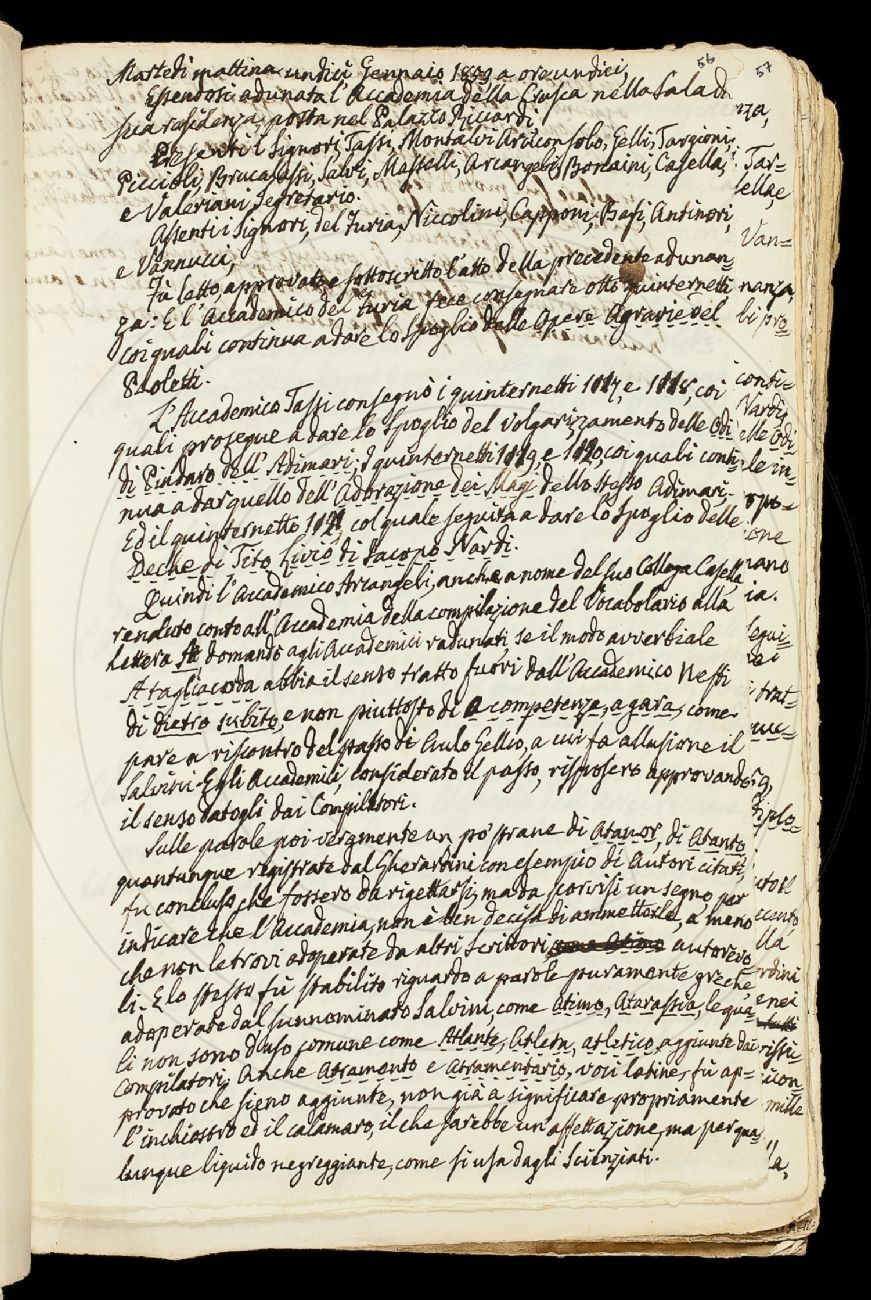 56
57
Martedi mattina undici Gennaio 1829 a ore undici,
Essendosi adunata l'Accademia della Crusca nella Sala di
sua residenza, posta nel Palazzo Riccardi.
Presenti i Signori Tassi, Montalvi Arciconsolo, Gelli, Targioni,
Piccioli, Brucalassi, Salvi, Masselli, Arcangeli, Borcaini, Casella,
e Valeriani Segretario.
Assenti i Signori, del Furia, Niccolini, Capponi, Basi, Antinori,
e Vannucci,
Fù letto, approvato e sottoscritto l'atto della precedente adunan=
za: E l'Accademico del Furia fece consegnare otto quinternetti
coi quali continua a dare lo spoglio delle Opere Agrarie del
Paoletti.
L'Accademico Tassi consegnò i quinternetti 1117, e 1118, coi
quali prosegue a dare lo spoglio del volgarizzamento delle Odi
di Pindaro dell'Adimari; I quinternetti 1119, e 1120, coi quali conti=
nua a dar quello dell'Adorazione dei Magi dello stesso Adimari.
Ed il quinternetto 1121, col quale seguita a dare lo spoglio delle
Deche di Tito Livio di Jacopo Nardi.
Quindi l'Accademico Arcangeli, anche a nome del suo Collega Casella
renduto conto all'Accademia della compilazione del Vocabolario alla
lettera At domandò agli Accademici radunati, se il modo avverbiale
A tagliacorda abbia il senso tratto fuori dall'Accademico Nesti
di dietro subito, e non piuttosto di a competenza, a gara, come
pare a riscontro del passo di Aulo Gellio, a cui fa allusione il
Salvini. E gli Accademici, considerato il passo, risposero approvando
il senso datogli dai Compilatori.
Sulle parole poi veramente un po' strane di Atanor, di Atanto,
quantunque registrate dal Gherardini con esempio di Autori citati,
fu concluso che fossero da rigettarsi, ma da porvisi un segno per
indicare che l'Accademia, non è ben decisa di ammetterle, a meno
che non le trovi adoperate da altri Scrittori, autorevo
li. E lo stesso fù stabilito riguardo a parole puramente greche,
adoperate dal sunnominato Salvini, come Atimo, Atarassia, le qua=
li non sono d'uso comune come Atlante, Atleta, atletico, aggiunte dai
Compilatori. Anche Atramento e Atramentario, voci latine, fù ap=
provato che sieno aggiunte, non già a significare propriamente
l'inchiostro ed il calamaro, il che sarebbe un'affettazione, ma per qua=
lunque liquido negreggiante, come si usa dagli Scienziati.